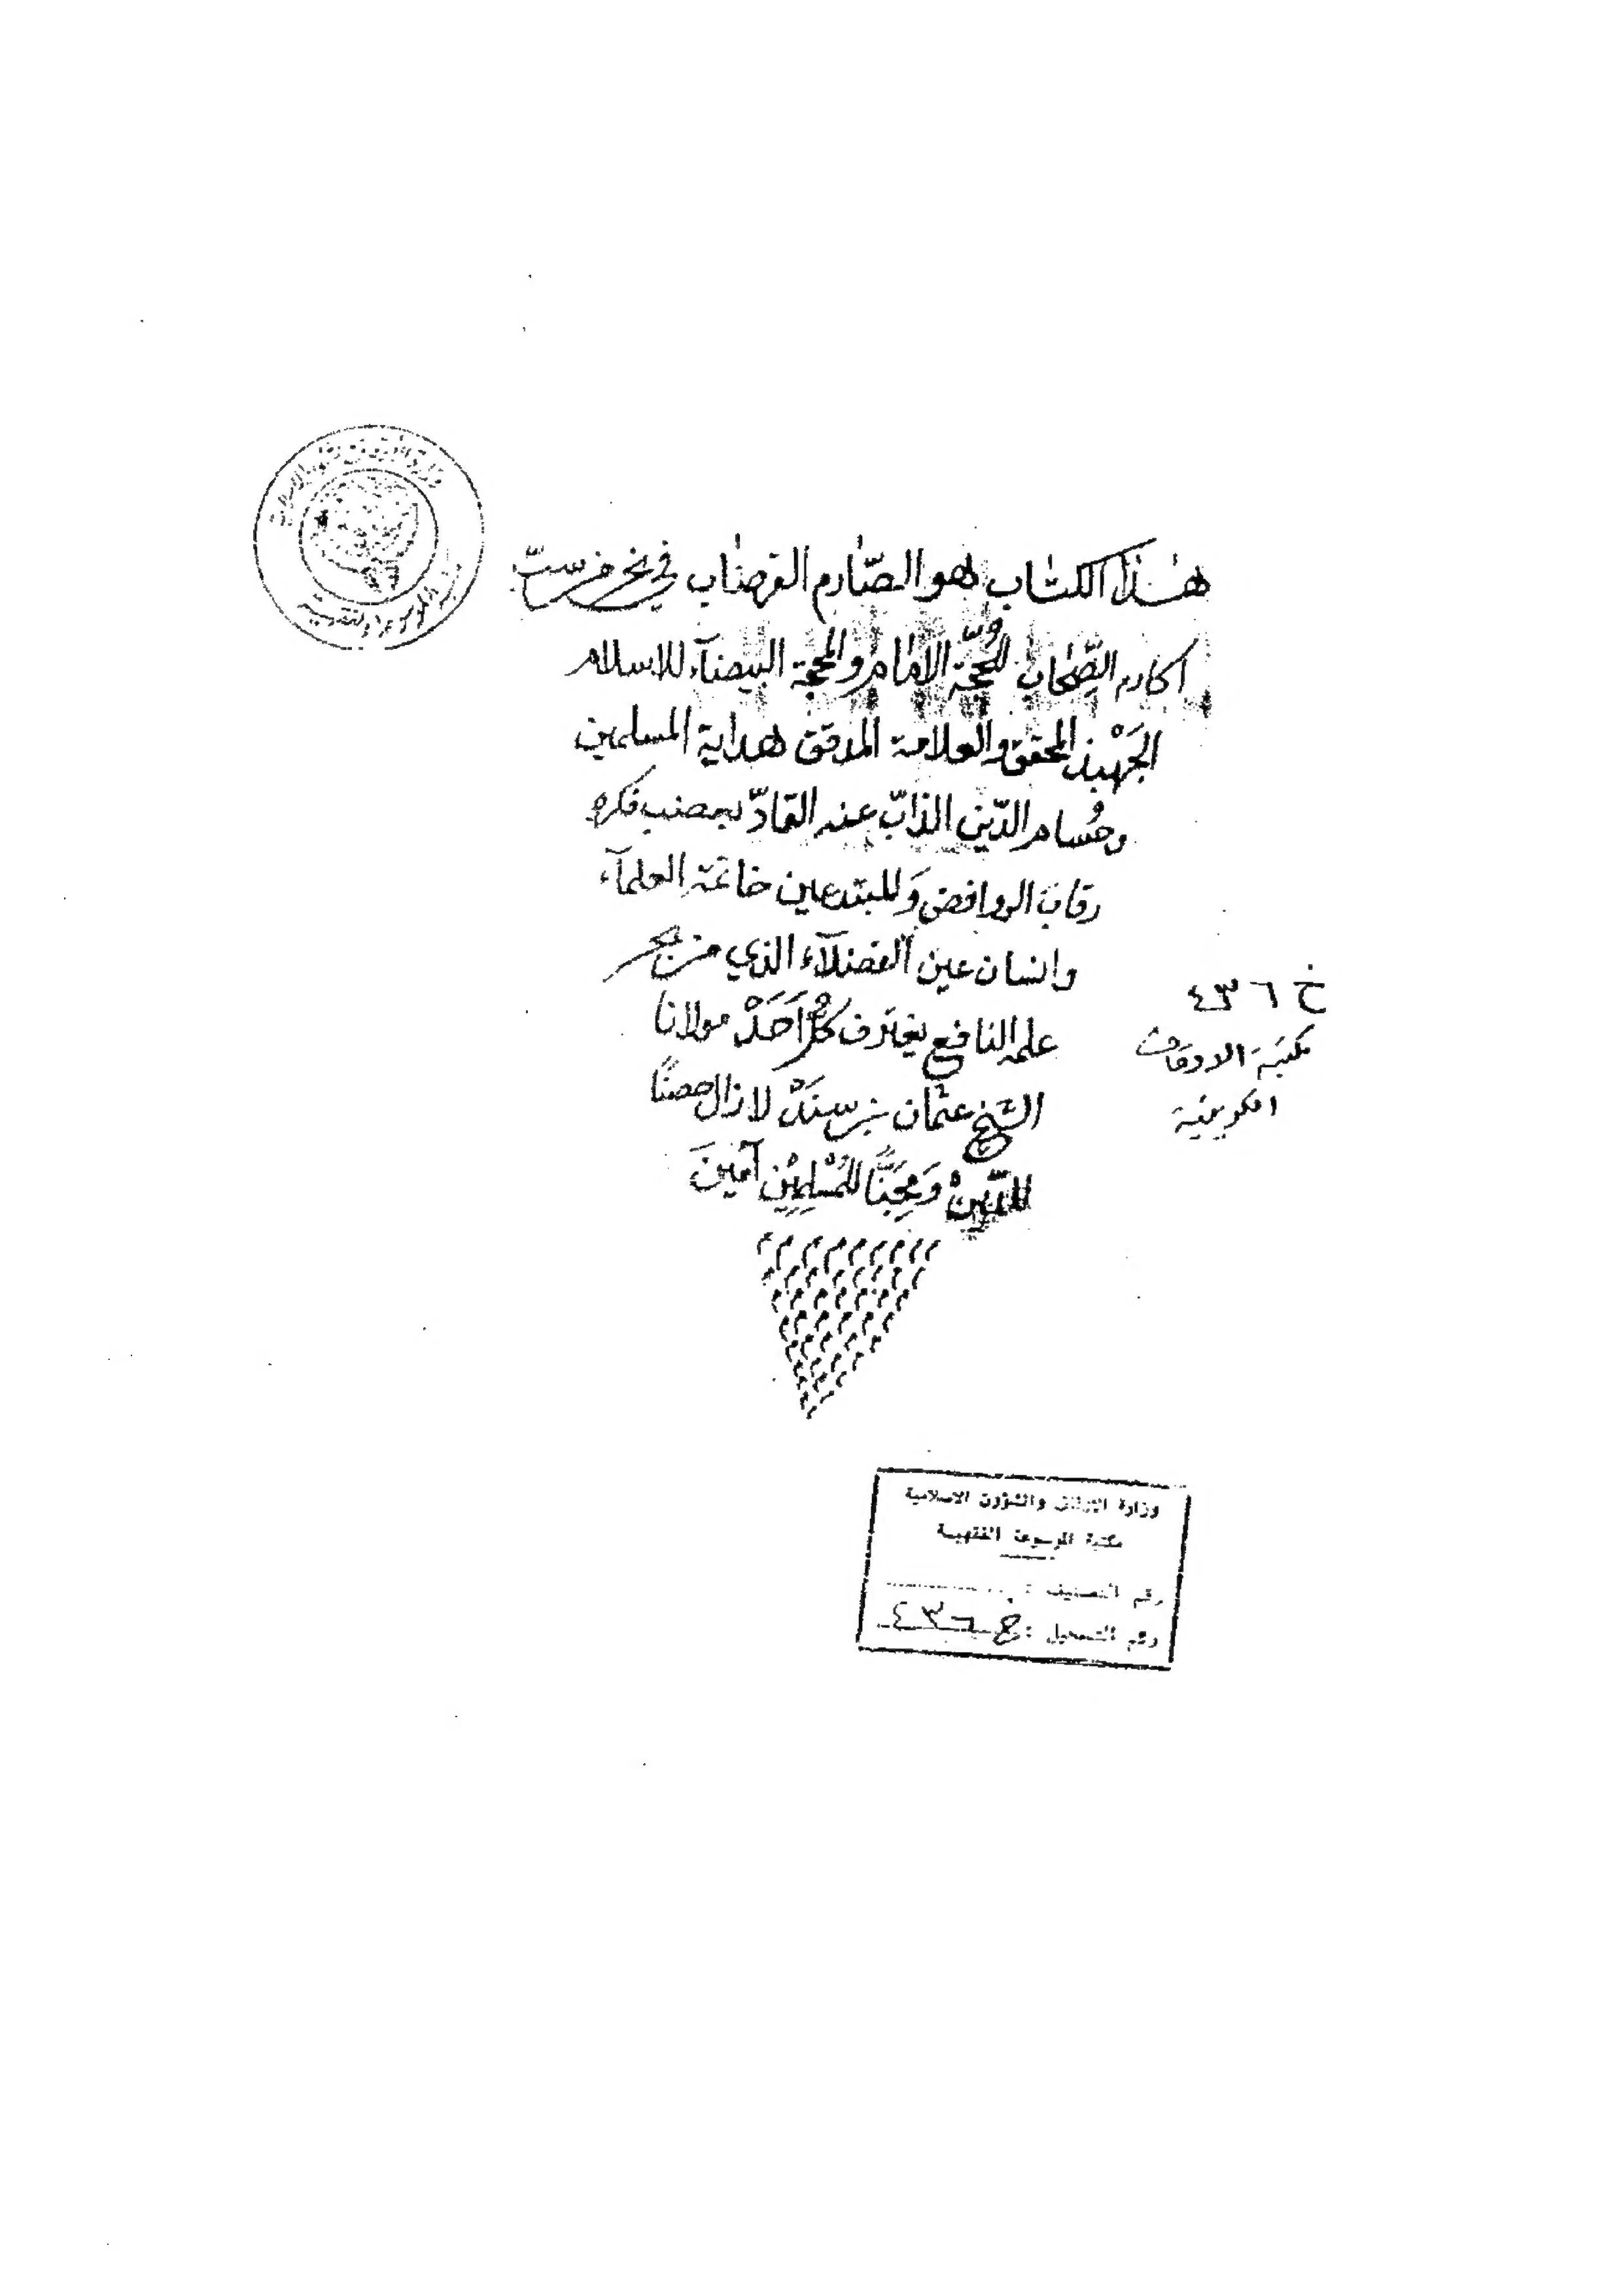 هٰذا الكتاب هو الصّارم القرضاب في نحر من سبّ
اكارم الصّحاب للحجّة الامام والمحجة البيضآء للاسلام
الجَهْبذ المحقق والعلامة المدقق هداية المسلمين
وحُسام الدّين الذابّ عنه القادّ بعضب فكره
رقاب الروافض وَالمبتدعين خاتمة العلمآء
وانسان عين الفضلآء الذي من بحر
علمه النافع يغترف كلُّ اَحَدْ مولانا
الشيخ عثمان بن سندْ لا زال حصنًا
للدّينْ وَمِجَنًّا للمُسْلِمِيْن آمينَ
خ ٤٣٦
مكتبة الاوقاف
الكويتية
وزارة الاوقاف والشؤون الاسلامية
مكتبة الموسوعة الفقهية
رقم التصنيف :
رقم التسجيل : خ ٤٣٦